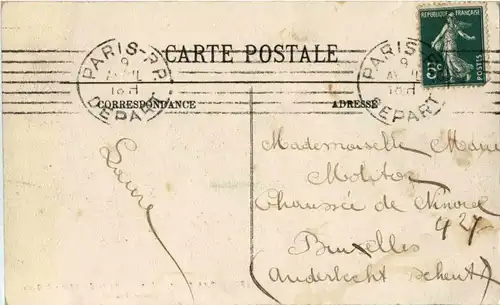 REPUBLIQUE FRANÇAISE
POSTES
5c
CARTE POSTALE
PARIS-R.P.
9
AVRIL
18H
DEPART
PARIS-R.P.
9
AVRIL
18H
DEPART
CORRESPONDANCE
ADRESSE
Laure
Mademoiselle Marie
Molitor
Chaussée de Ninove
427
Bruxelles
(Anderlecht scheut)